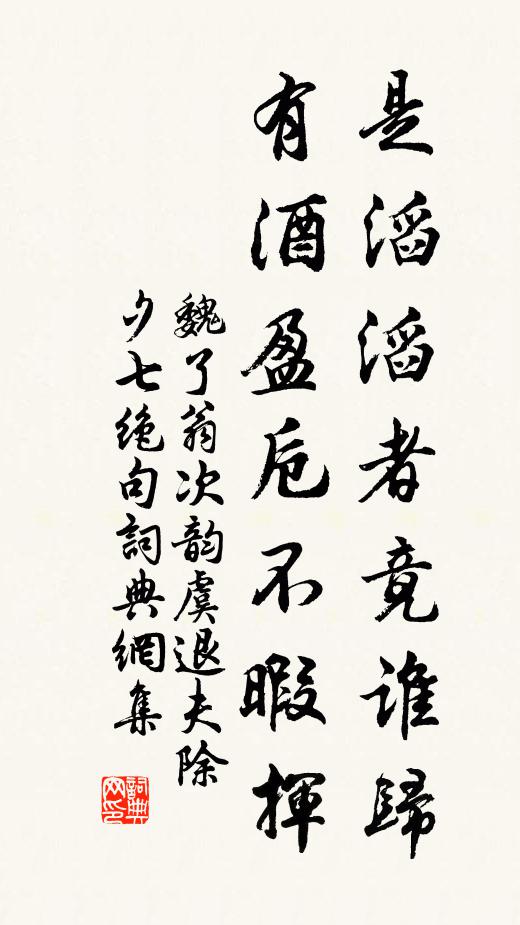 是滔滔者竟誰歸
有酒盈卮不暇揮
魏了翁次韵虞退夫除
夕七绝句詞典網集
詞典
网印